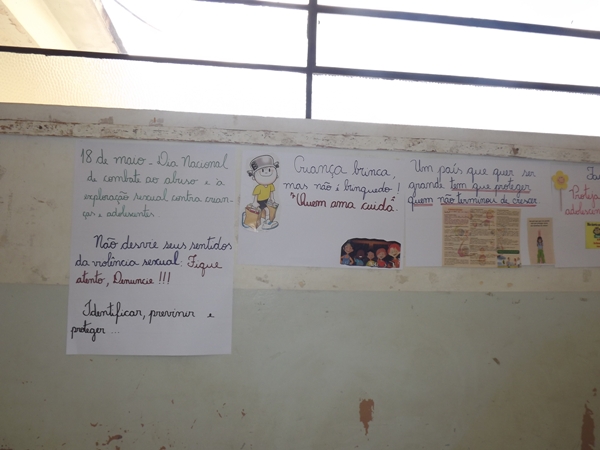 18 de maio - Dia Nacional
de combate ao abuso e à
exploração sexual contra crian-
ças e adolescentes.
Não desvie seus sentidos
da violência sexual. Fique
atento, Denuncie !!!
Identificar, previnir e
proteger ...
Criança brinca,
mas não é brinquedo !
"Quem ama cuida".
Um país que quer ser
grande tem que proteger
quem não terminou de crescer